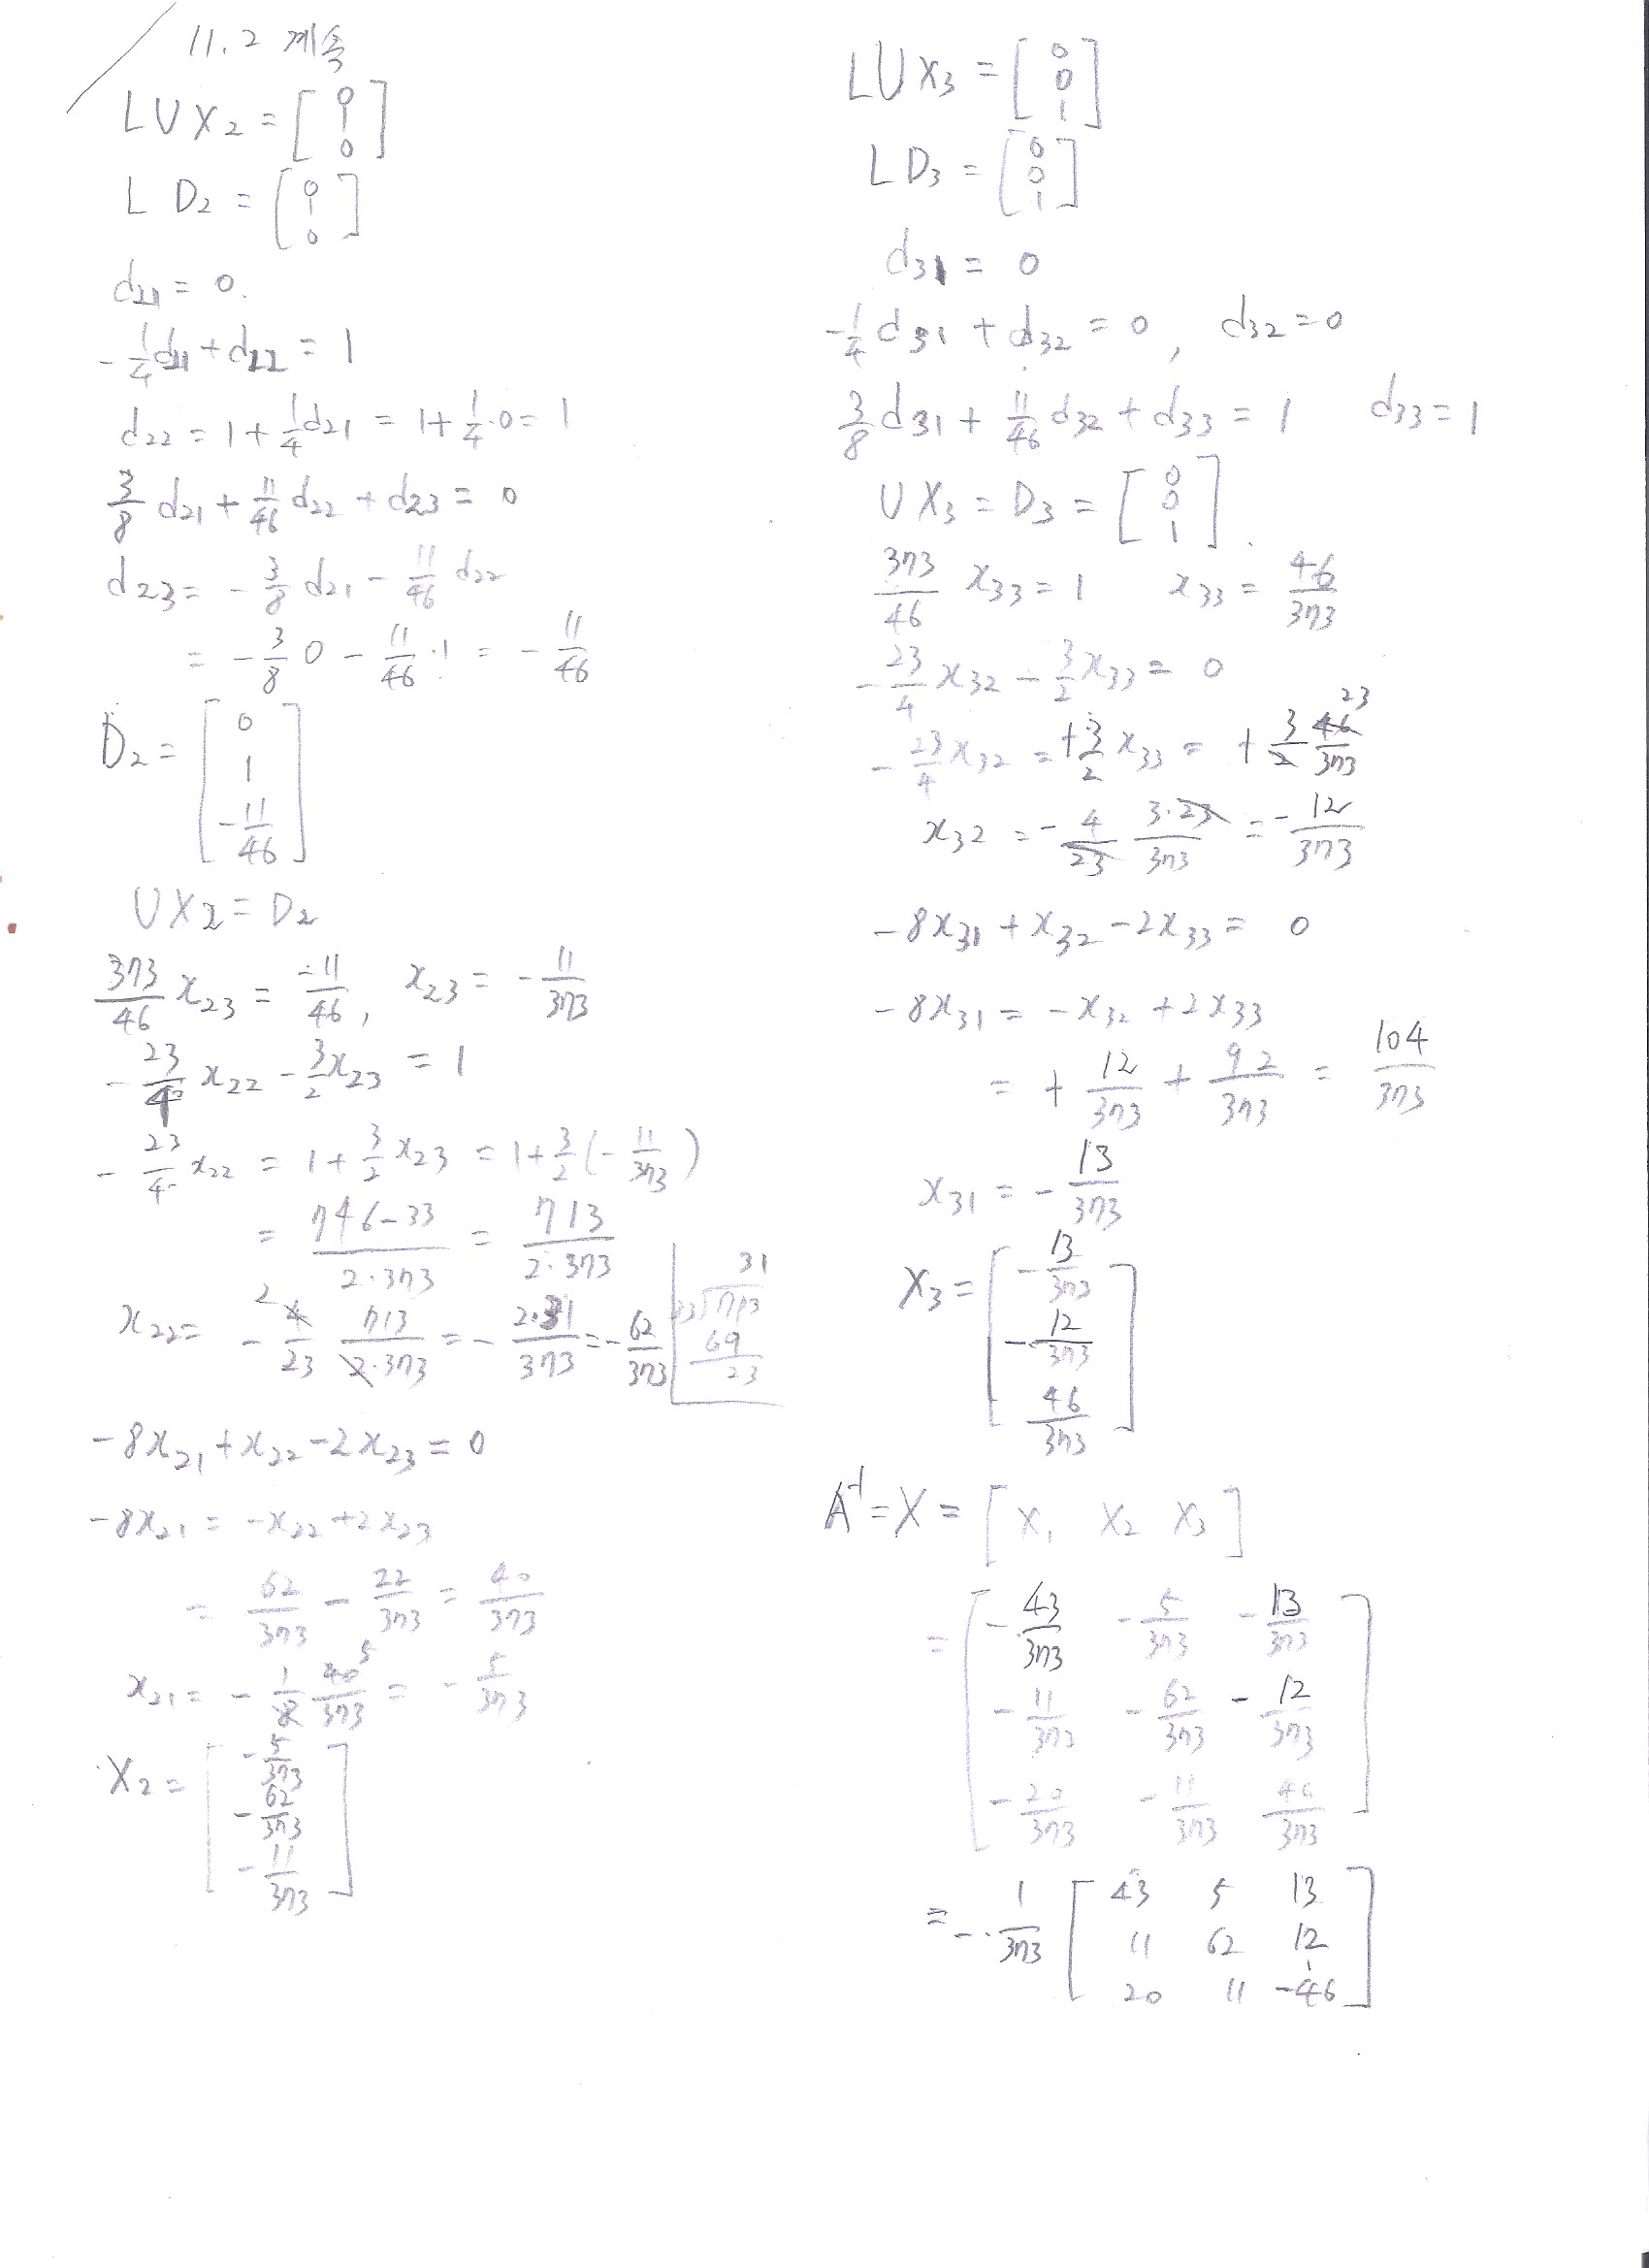 11.2 계속
LUX₂ = [0 1 0]
L D₂ = [0 1 0]
d₂₁ = 0.
-1/4 d₂₁ + d₂₂ = 1
d₂₂ = 1 + 1/4 d₂₁ = 1 + 1/4 · 0 = 1
3/8 d₂₁ + 11/46 d₂₂ + d₂₃ = 0
d₂₃ = -3/8 d₂₁ - 11/46 d₂₂
= -3/8 0 - 11/46 · 1 = -11/46
D₂ = [0 1 -11/46]
UX₂ = D₂
373/46 x₂₃ = -11/46, x₂₃ = -11/373
-23/4 x₂₂ - 3/2 x₂₃ = 1
-23/4 x₂₂ = 1 + 3/2 x₂₃ = 1 + 3/2 (-11/373)
= (746-33)/(2·373) = 713/(2·373)
x₂₂ = -4/23 713/(2·373) = -(2·31)/373 = -62/373
2
31
23 713
69
23
-8x₂₁ + x₂₂ - 2x₂₃ = 0
-8x₂₁ = -x₂₂ + 2x₂₃
= 62/373 - 22/373 = 40/373
x₂₁ = -1/8 40/373 = -5/373
5
X₂ = [-5/373 -62/373 -11/373]
LUX₃ = [0 0 1]
LD₃ = [0 0 1]
d₃₁ = 0
-1/4 d₃₁ + d₃₂ = 0, d₃₂ = 0
3/8 d₃₁ + 11/46 d₃₂ + d₃₃ = 1 d₃₃ = 1
UX₃ = D₃ = [0 0 1].
373/46 x₃₃ = 1 x₃₃ = 46/373
-23/4 x₃₂ - 3/2 x₃₃ = 0
23
-23/4 x₃₂ = +3/2 x₃₃ = +3/2 46/373
x₃₂ = -4/23 (3·23)/373 = -12/373
-8x₃₁ + x₃₂ - 2x₃₃ = 0
-8x₃₁ = -x₃₂ + 2x₃₃
= +12/373 + 92/373 = 104/373
x₃₁ = -13/373
X₃ = [-13/373 -12/373 46/373]
A⁻¹ = X = [X₁ X₂ X₃]
= [-43/373 -5/373 -13/373
-11/373 -62/373 -12/373
-20/373 -11/373 46/373]
= -1/373 [43 5 13
11 62 12
20 11 -46]